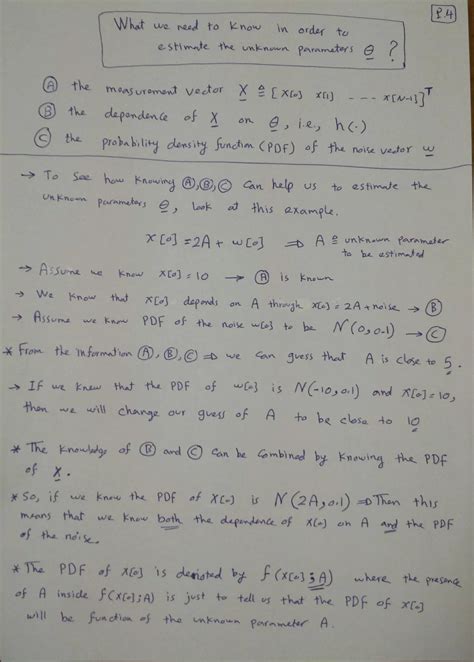 P.4
What we need to know in order to
estimate the unknown parameters θ ?
Ⓐ the measurement vector X ≜ [x[0] x[1] ---- x[N-1]]ᵀ
Ⓑ the dependence of X on θ, i.e., h(·)
Ⓒ the probability density function (PDF) of the noise vector w
→ To see how knowing Ⓐ,Ⓑ,Ⓒ can help us to estimate the
unknown parameters θ, look at this example.
x[0] = 2A + w[0] ⇒ A ≜ unknown parameter
to be estimated
→ Assume we know x[0] = 10 → Ⓐ is known
→ We know that x[0] depends on A through x[0] = 2A + noise → Ⓑ
→ Assume we know PDF of the noise w[0] to be N(0,0.1) → Ⓒ
* From the information Ⓐ, Ⓑ, Ⓒ ⇒ we can guess that A is close to 5.
→ If we knew that the PDF of w[0] is N(-10,0.1) and x[0] = 10,
then we will change our guess of A to be close to 10
* The knowledge of Ⓑ and Ⓒ can be combined by knowing the PDF
of X.
* So, if we know the PDF of x[0] is N(2A,0.1) ⇒ Then this
means that we know both the dependence of x[0] on A and the PDF
of the noise.
* The PDF of x[0] is denoted by f(x[0];A) where the presence
of A inside f(x[0];A) is just to tell us that the PDF of x[0]
will be function of the unknown parameter A.